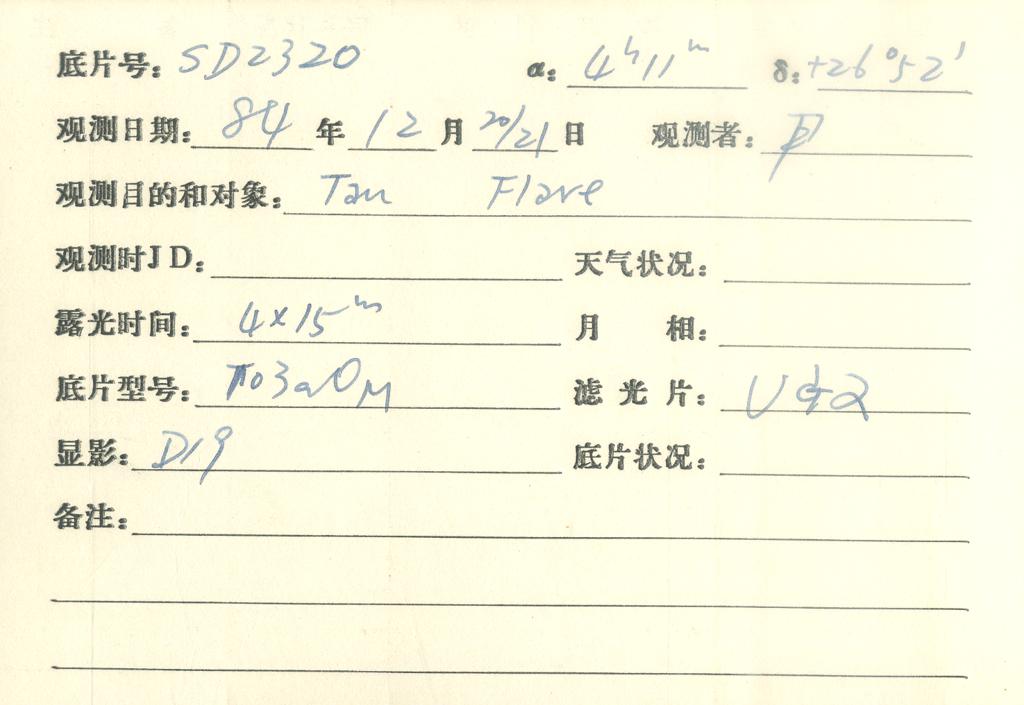 底片号: SD2320 α: 4ʰ11ᵐ δ: +26°52'
观测日期: 84 年 12 月 20/21 日 观测者:
观测目的和对象: Tau Flare
观测时JD: 天气状况:
露光时间: 4×15ᵐ 月 相:
底片型号: 103aO 滤光片: U
显影: D19 底片状况:
备注: